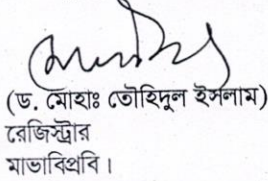 (ড. মোহাঃ তৌহিদুল ইসলাম)
রেজিস্ট্রার
মাভাবিপ্রবি।